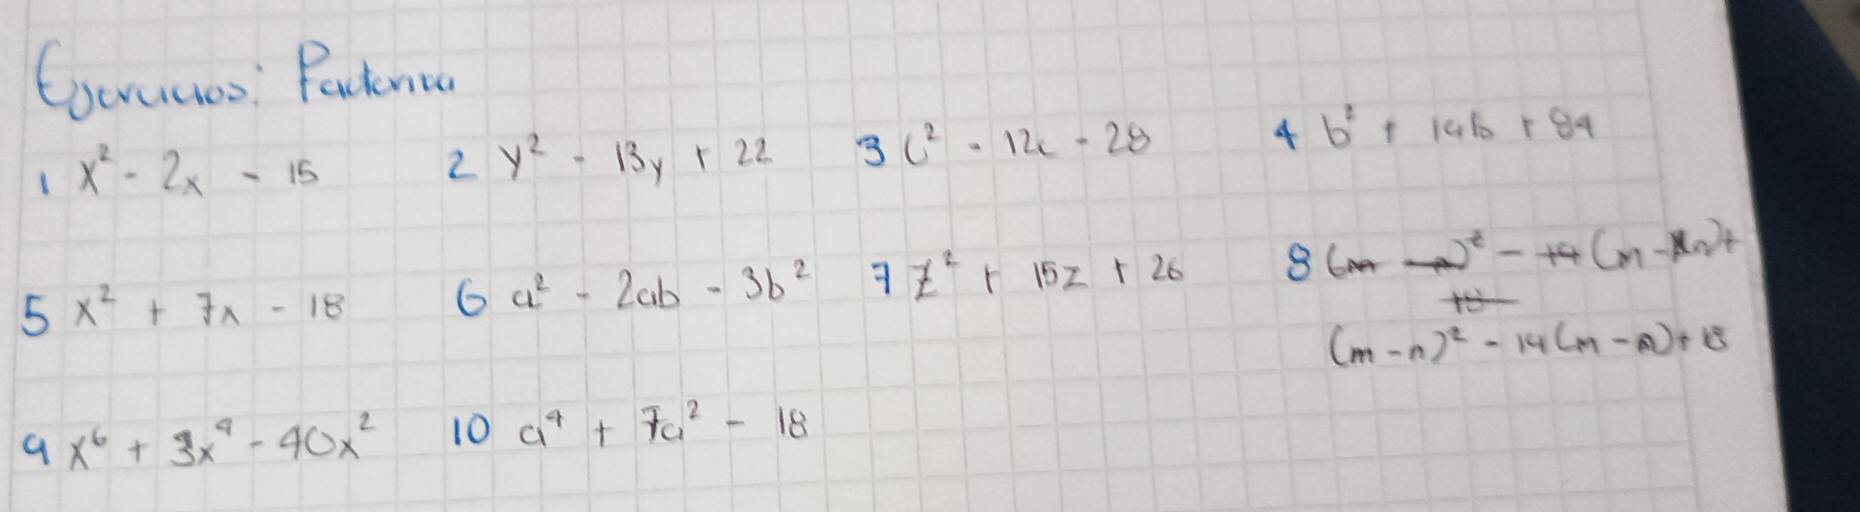 Ejercicios: Factoriza
1 x² - 2x - 15 2 y² - 13y + 22 3 c² - 12c - 28 4 b² + 19b + 84
5 x² + 7x - 18 6 a² - 2ab - 3b² 7 z² + 15z + 26 8 (m - n)² - 14 (m - n) +
(m - n)² - 14(m - n) + 13
9 x⁶ + 3x⁴ - 40x² 10 a⁴ + 7a² - 18